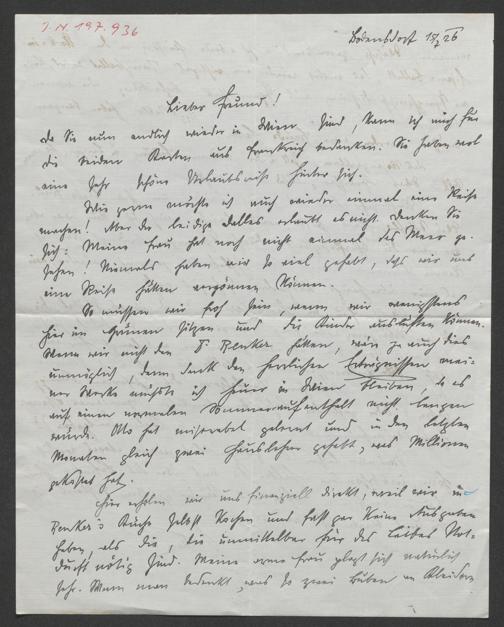 I.N. 197.936
Bodensdorf 18/7 26
Lieber Freund!
Da Sie nun endlich wieder in Wien sind, kann ich mich für
die beiden Karten aus Frankreich bedanken. Sie haben wol
eine sehr schöne Urlaubsreise hinter sich.
Wie gerne möchte ich auch wieder einmal eine Reise
machen! Aber der leidige Dalles erlaubt es nicht. Denken Sie
sich: Meine Frau hat noch nicht einmal das Meer ge-
sehen! Niemals haben wir so viel gehabt, dass wir uns
eine Reise hätten vergönnen können.
So müssen wir froh sein, wenn wir wenigstens
hier im Grünen sitzen und die Kinder auslüften können.
Wenn wir nicht den Dr. Renker hätten, wäre ja auch dies
unmöglich, denn dank den herrlichen Erträgnissen mei-
ner Werke müsste ich heuer in Wien bleiben, da es
auf einen normalen Sommeraufenthalt nicht langen
würde. Otto hat miserabel gelernt und in den letzten
Monaten gleich zwei Hauslehrer gehabt, was Millionen
gekostet hat.
Hier erholen wir uns finanziell direkt, weil wir in
Renker's Küche selbst kochen und fast gar keine Ausgaben
haben, als die, die unmittelbar für des Leibes Not-
durft nötig sind. Meine arme Frau plagt sich natürlich
sehr. Wenn man bedenkt, was so zwei Buben an Kleidern